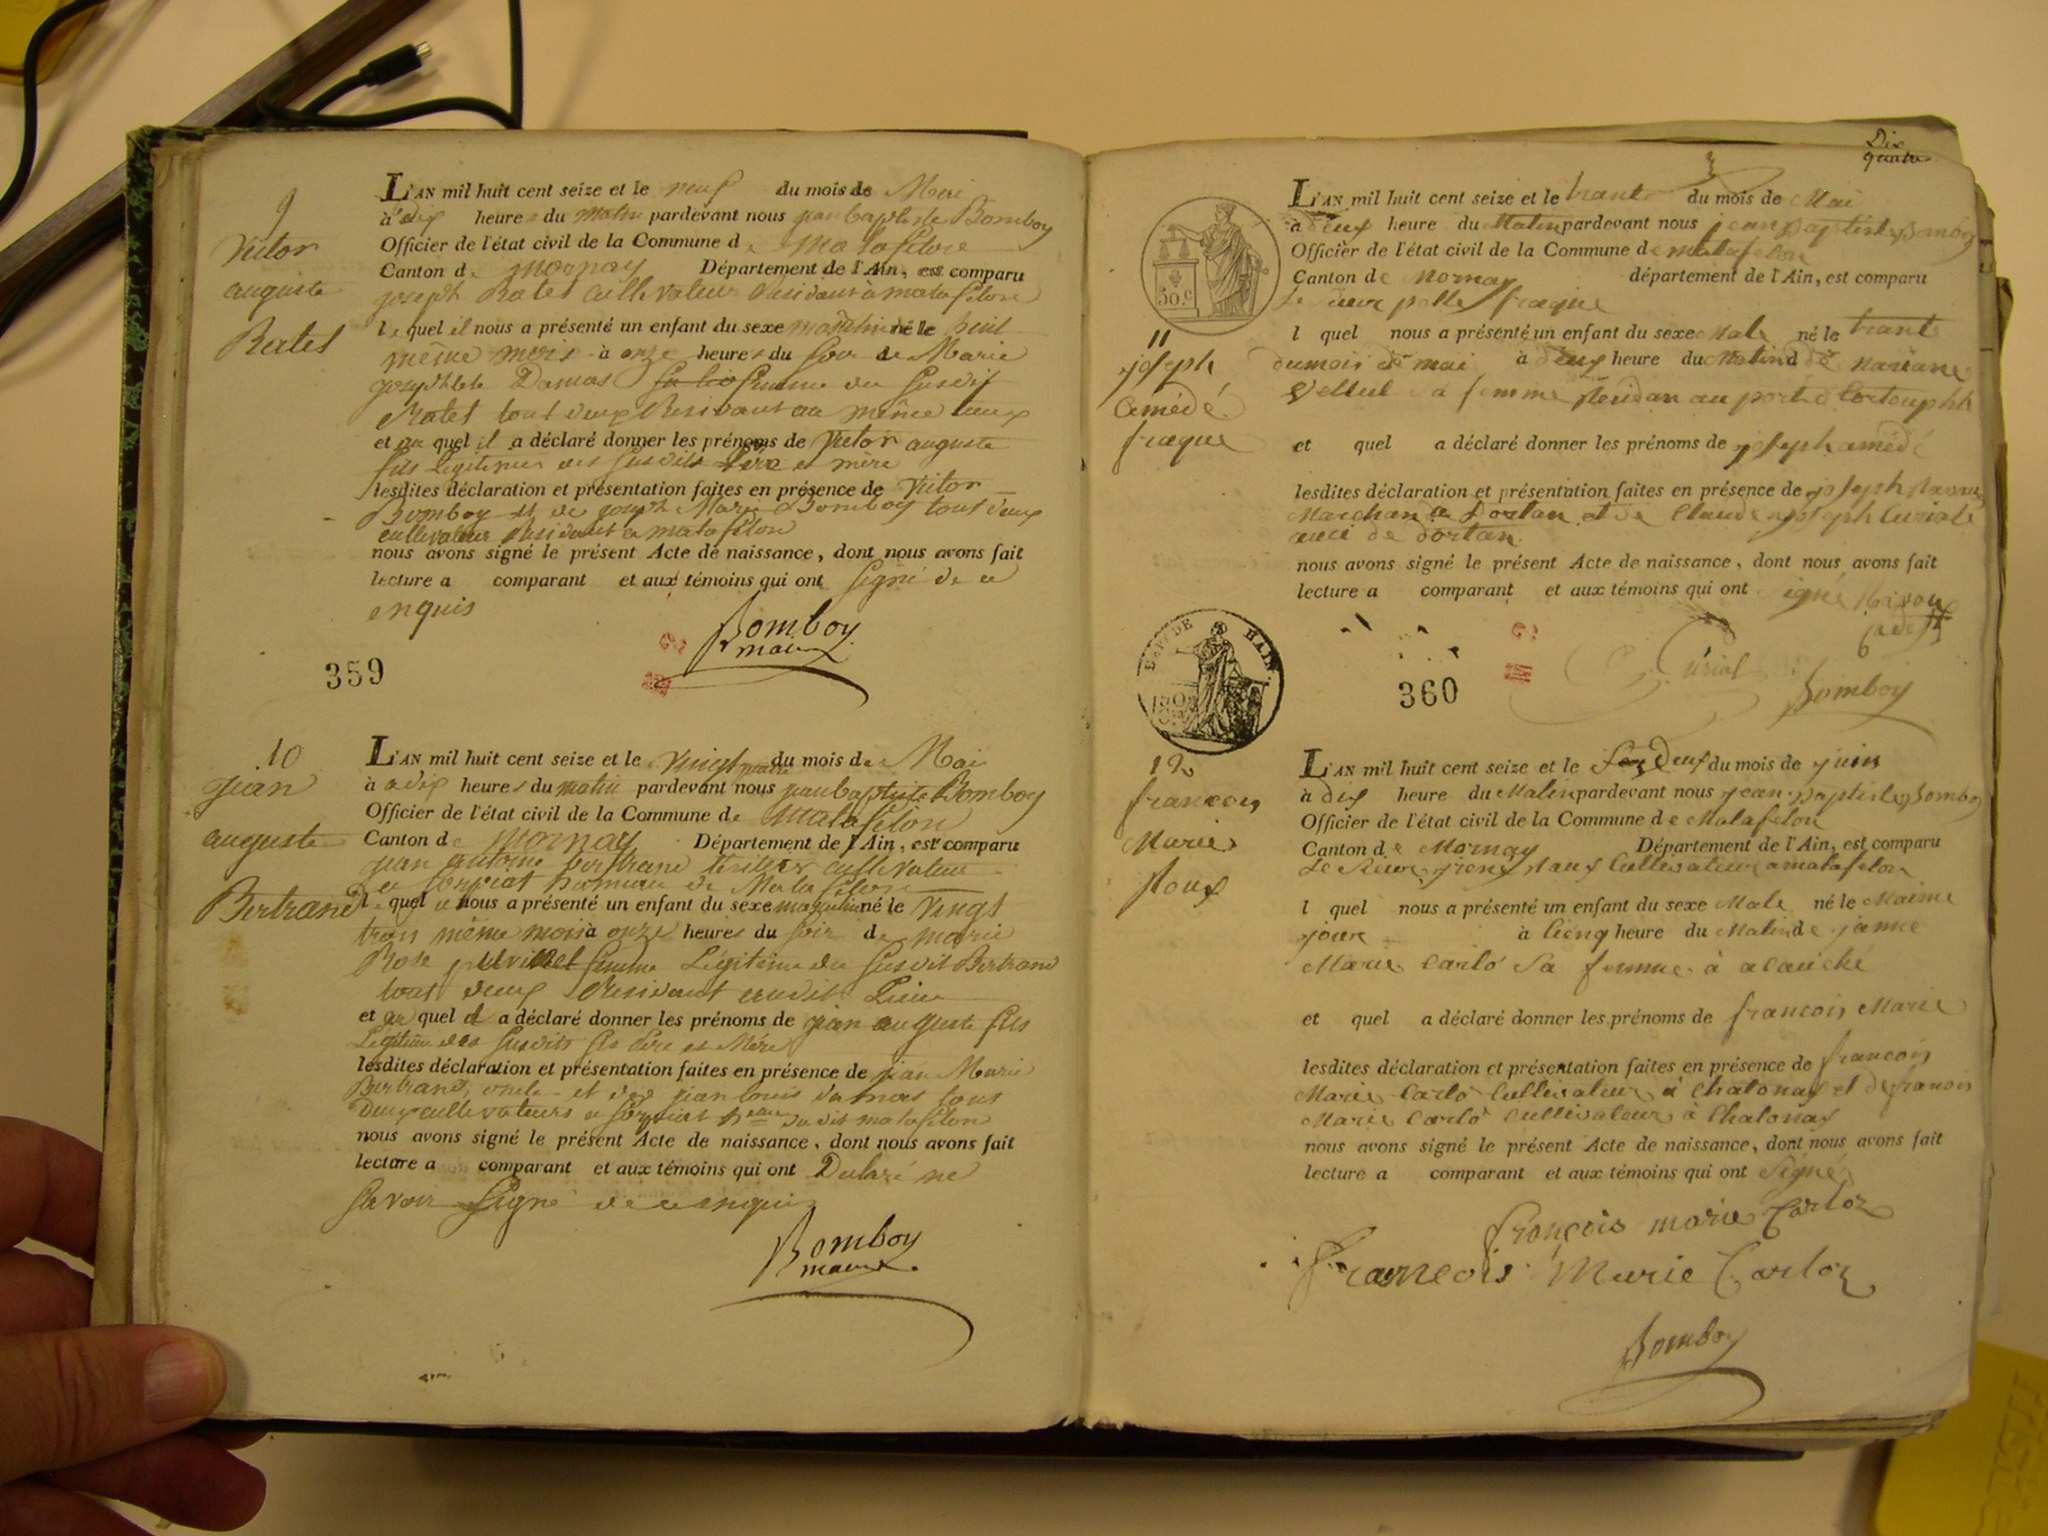 9
Victor
auguste
Ratel
L'AN mil huit cent seize et le neuf du mois de Mai
à dix heures du matin pardevant nous jean baptiste Bomboy
Officier de l'état civil de la Commune de Matafelon
Canton de Mornay Département de l'Ain, est comparu
joseph Ratel cultivateur Residant à matafelon
lequel il nous a présenté un enfant du sexe masculin né le huit
même mois à onze heures du soir de Marie
Damas femme du susdit
Ratel tout deux Residant au même lieux
et au quel il a déclaré donner les prénoms de Victor auguste
fils Legitime des susdits père et mère
lesdites déclaration et présentation faites en présence de Victor
Bomboy et de joseph Marie Bomboy tout deux
cultivateur Residant a matafelon
nous avons signé le présent Acte de naissance, dont nous avons fait
lecture a comparant et aux témoins qui ont signé de ce
enquis
Bomboy
maire
359
10
jean
auguste
Bertrand
L'AN mil huit cent seize et le vingt quatre du mois de Mai
à dix heures du matin pardevant nous jean baptiste Bomboy
Officier de l'état civil de la Commune de Matafelon
Canton de Mornay Département de l'Ain, est comparu
jean antoine bertrand cultivateur
a hameau de Matafelon
lequel il nous a présenté un enfant du sexe masculin né le vingt
trois même mois à onze heures du soir de marie
Rose femme Légitime du susdit Bertrand
tout deux Residant audit Lieu
et au quel il a déclaré donner les prénoms de jean auguste fils
Légitime des susdits père et Mère
lesdites déclaration et présentation faites en présence de jean Marie
Bertrand, oncle et de jean louis damas tous
deux cultivateurs a dudit matafelon
nous avons signé le présent Acte de naissance, dont nous avons fait
lecture a comparant et aux témoins qui ont Déclaré ne
savoir signé de ce enquis
Bomboy
maire
Dix
quatre
3
50.c
11
joseph
amédé
fraque
L'AN mil huit cent seize et le trante du mois de Mai
à deux heure du Matin pardevant nous jean baptiste Bomboy
Officier de l'état civil de la Commune de matafelon
Canton de Mornay département de l'Ain, est comparu
le sieur fraque
l quel nous a présenté un enfant du sexe Male né le trante
du mois de mai à deux heure du Matin de mariane
sa femme au port
et quel a déclaré donner les prénoms de joseph amédé
lesdites déclaration et présentation faites en présence de joseph
Marchan a Dortan et de Claude joseph Curial
auci de dortan
nous avons signé le présent Acte de naissance, dont nous avons fait
lecture a comparant et aux témoins qui ont signé
Curial
Bomboy
360
12
francois
Marie
Roux
L'AN mil huit cent seize et le deux du mois de juin
à dix heure du Matin pardevant nous jean baptiste Bomboy
Officier de l'état civil de la Commune de Matafelon
Canton de Mornay Département de l'Ain, est comparu
Le sieur Roux Cultivateur a matafelon
l quel nous a présenté un enfant du sexe Male né le Maime
jour à cienq heure du Matin de janne
Marie Carlo sa femme à
et quel a déclaré donner les prénoms de francois Marie
lesdites déclaration et présentation faites en présence de francois
Marie Carlo Cultivateur à Chatonax et de francois
Marie Carlo Cultivateur à Chatonax
nous avons signé le présent Acte de naissance, dont nous avons fait
lecture a comparant et aux témoins qui ont signé
françois marie Carloz
Francois Marie Carloz
Bomboy